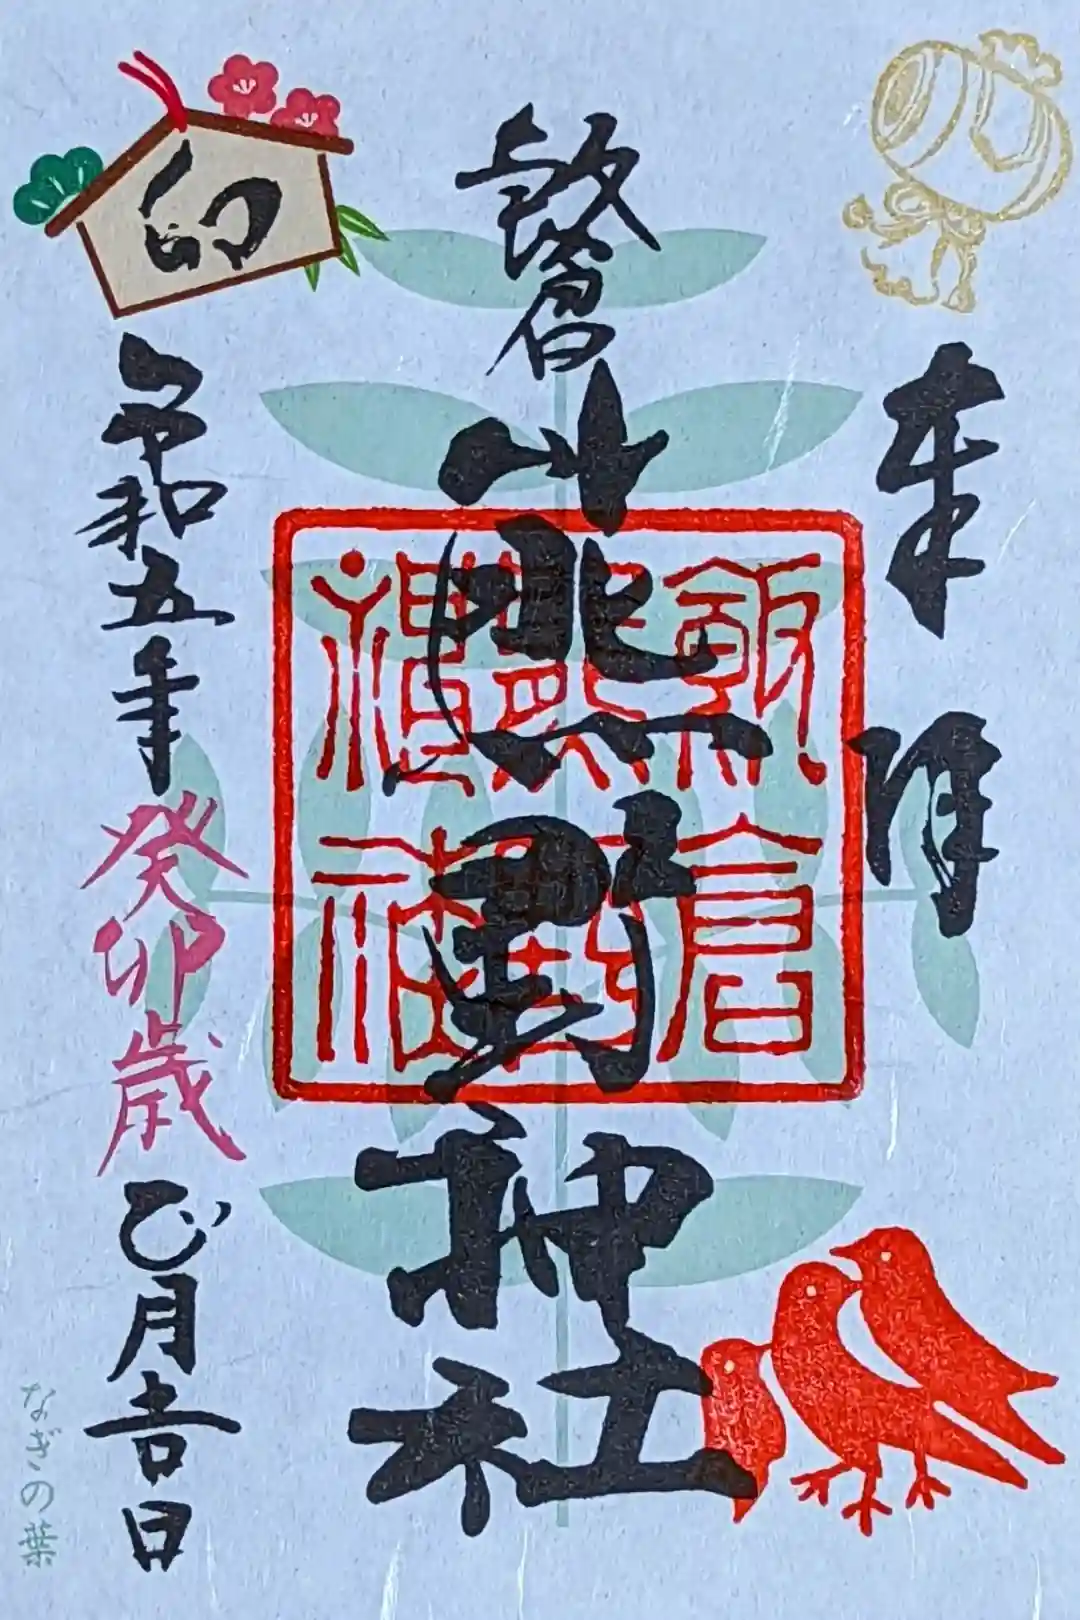 奉拝
飯倉
熊野神社
飯倉
熊野
神社
卯
令和五年癸卯歳正月吉日
なぎの葉